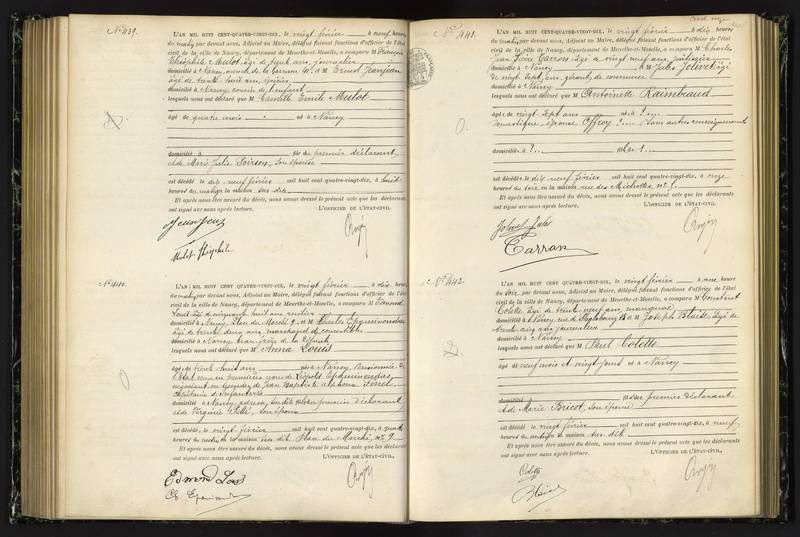 N° 439.
L'AN MIL HUIT CENT QUATRE-VINGT-DIX, le vingt février à neuf heures
du matin par devant nous, Adjoint au Maire, délégué faisant fonctions d'officier de l'état
civil de la ville de Nancy, département de Meurthe-et-Moselle, a comparu M François
Théophile Mulot, âgé de trente ans, journalier
domicilié à Nancy, et M Ernest Jeanjean
âgé de trente huit ans,
domicilié à Nancy, cousin de l'enfant
lesquels nous ont déclaré que M Camille Emile Mulot
âgé de quatre mois né à Nancy
domicilié à fils du premier déclarant
et de Marie Julie Poirson, son épouse
est décédé le dix neuf février mil huit cent quatre-vingt-dix, à huit
heures du matin en la maison sus dite
Et après nous être assuré du décès, nous avons dressé le présent acte que les déclarants
ont signé avec nous après lecture. L'OFFICIER DE L'ÉTAT-CIVIL,
Jeanjean
Mulot Théophile
N° 440.
L'AN MIL HUIT CENT QUATRE-VINGT-DIX, le vingt février à dix heures
du matin par devant nous, Adjoint au Maire, délégué faisant fonctions d'officier de l'état
civil de la ville de Nancy, département de Meurthe-et-Moselle, a comparu M Edmond
Louis âgé de cinquante huit ans rentier
domicilié à Nancy, Place du Marché 9, et M Charles Epaminondas
âgé de trente deux ans, marchand de comestibles
domicilié à Nancy beau frère de la défunte
lesquels nous ont déclaré que M Anna Louis
âgée de trente huit ans née à Nancy, pensionnée de
l'Etat veuve en premières noces de Léopold Epaminondas
négociant en secondes de Jean Baptiste Alphonse
Capitaine d'Infanterie
domiciliée à Nancy, sus dite fille du premier déclarant
et de Virginie, son épouse
est décédée, le vingt février mil huit cent quatre-vingt-dix, à quatre
heures du matin en la maison sus dite Place du Marché, n° 9
Et après nous être assuré du décès, nous avons dressé le présent acte que les déclarants
ont signé avec nous après lecture. L'OFFICIER DE L'ÉTAT-CIVIL,
Edmond Louis
Ch. Epaminondas
N° 441.
L'AN MIL HUIT CENT QUATRE-VINGT-DIX, le vingt février à dix heures
du matin par devant nous, Adjoint au Maire, délégué faisant fonctions d'officier de l'état
civil de la ville de Nancy, département de Meurthe-et-Moselle, a comparu M Charles
Jean Pierre Carron âgé de vingt neuf ans,
domicilié à Nancy et M Jules Jolivet âgé
de vingt sept ans, gérant de
domicilié à Nancy
lesquels nous ont déclaré que M Antoinette Raimbeaud
âgée de vingt sept ans née à ?
domestique, épouse Offroy ? (sans autres renseignements
domiciliée à ? fille de ?
est décédée, le dix neuf février mil huit cent quatre-vingt-dix, à onze
heures du soir, en la maison rue des Michottes, n° 1
Et après nous être assuré du décès, nous avons dressé le présent acte que les déclarants
ont signé avec nous après lecture. L'OFFICIER DE L'ÉTAT-CIVIL,
Jolivet Jules
Carron
N° 442.
L'AN MIL HUIT CENT QUATRE-VINGT-DIX, le vingt février à onze heures
du matin par devant nous, Adjoint au Maire, délégué faisant fonctions d'officier de l'état
civil de la ville de Nancy, département de Meurthe-et-Moselle, a comparu M Constant
Colette âgé de trente neuf ans,
domicilié à Nancy, rue de Strasbourg et M Joseph Blaise âgé de
trente cinq ans journalier
domicilié à Nancy
lesquels nous ont déclaré que M Paul Colette
âgé de neuf mois et vingt jours né à Nancy
domicilié fils du premier déclarant
et de Marie Bricot, son épouse
est décédé le vingt février mil huit cent quatre-vingt-dix, à neuf
heures du matin en la maison sus dite
Et après nous être assuré du décès, nous avons dressé le présent acte que les déclarants
ont signé avec nous après lecture. L'OFFICIER DE L'ÉTAT-CIVIL,
Colette
Blaise